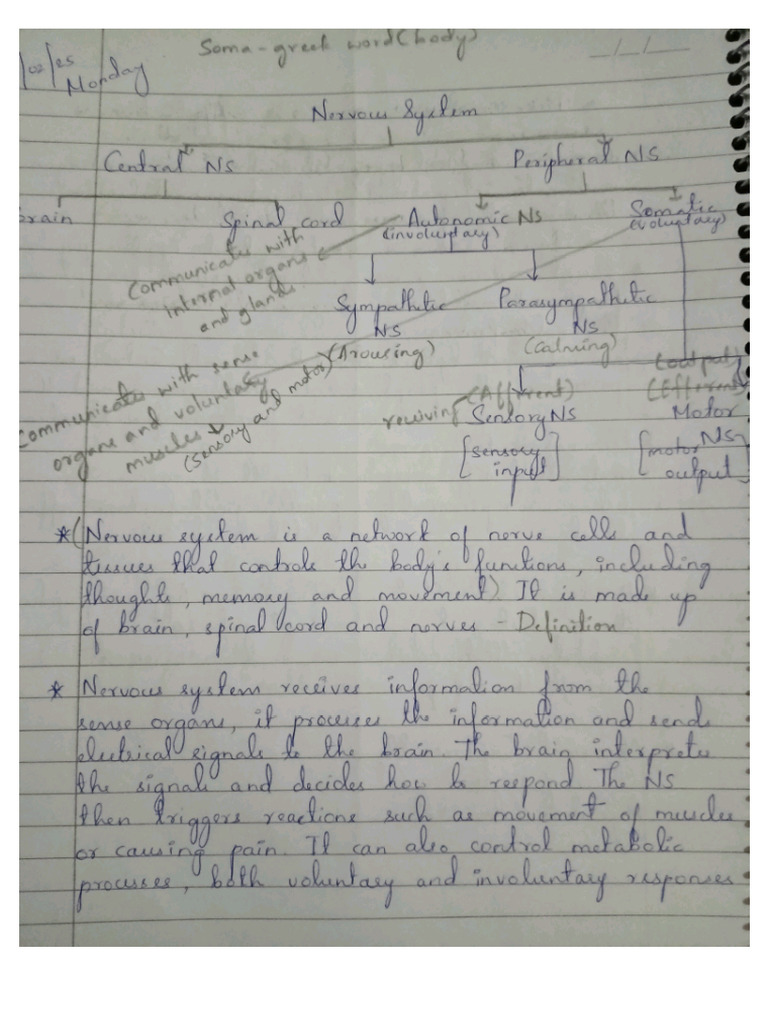 Soma - greek word (body)
/02/25
Monday
__/__/__
Nervous System
Central NS
Peripheral NS
brain
Spinal cord
Autonomic NS
(involuntary)
Somatic
(voluntary)
Communicates with
internal organs
and glands
Sympathetic
NS
(Arousing)
Parasympathetic
NS
(Calming)
Communicates with sense
organs and voluntary
muscles
(sensory and motor)
(Afferent)
receiving
Sensory NS
[sensory
input]
(output)
(Efferent)
Motor
NS
[motor
output]
* (Nervous system is a network of nerve cells and
tissues that controls the body's functions, including
thoughts, memory and movement) It is made up
of brain, spinal cord and nerves - Definition
* Nervous system receives information from the
sense organs, it processes the information and sends
electrical signals to the brain. The brain interprets
the signals and decides how to respond The NS
then triggers reactions such as movement of muscles
or causing pain. It can also control metabolic
processes, both voluntary and involuntary responses